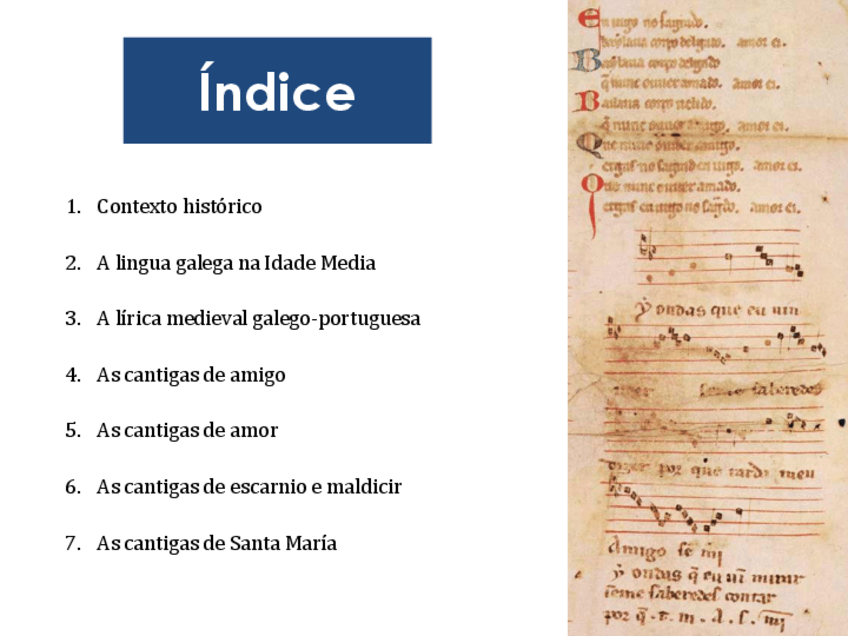 Índice
1. Contexto histórico
2. A lingua galega na Idade Media
3. A lírica medieval galego-portuguesa
4. As cantigas de amigo
5. As cantigas de amor
6. As cantigas de escarnio e maldicir
7. As cantigas de Santa María
E no sagrado.
corpo delgado. amor ei.
corpo delgado
amado. amor ei.
Bailaua corpo uelido.
amor ei.
Que nunc ouuer amigo.
no sagrad en uigo. amor ei.
Que nunc ouuer amado.
en uigo no sagrado. amor ei.
ondas que eu uin
ueer se me saberedes
dizer por que tarda meu
Amigo se mi
ondas q̃ eu uĩ mirar
seme saberedes contar
por q̃